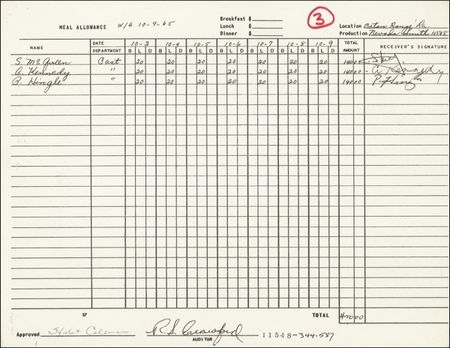 MEAL ALLOWANCE W/E 10-9-65
Breakfast $
Lunch $
Dinner $
3
Location Baton Rouge La.
Production Nevada Smith 11548
NAME DATE DEPARTMENT 10-3 10-4 10-5 10-6 10-7 10-8 10-9 TOTAL AMOUNT RECEIVER'S SIGNATURE
B L D B L D B L D B L D B L D B L D B L D
S. McQueen Cast 20 20 20 20 20 20 20 140 00
A. Kennedy " 20 20 20 20 20 20 20 140 00 A Kennedy
P. Hingle " 20 20 20 20 20 20 20 140 00 P. Hingle
37 TOTAL
Approved
R.S. Crawford
AUDITOR
11548-344-557